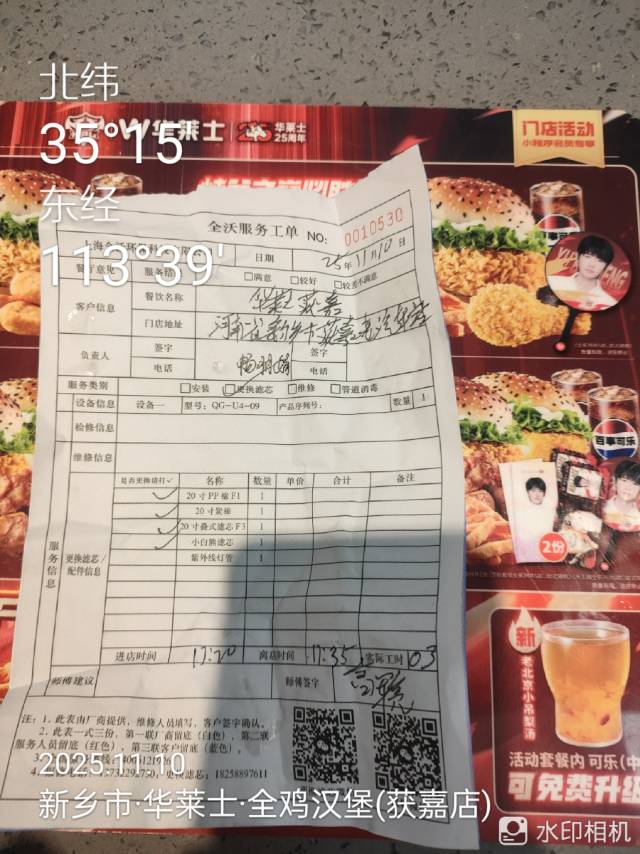 北纬
35°15
东经
113°39'
华莱士
华莱士
25周年
门店活动
小程序会员专享
全沃服务工单 NO: 0010530
日期 25年11月10日
餐厅意见 服务结 □满意 □较好 □较差不满意
客户信息
餐饮名称 华莱士获嘉
门店地址
负责人
签字
电话
签字
电话
服务类别 □安装 □更换滤芯 □维修 □管道消毒
设备信息 设备一 型号: QG-U4-09 产品序列号: 数量 1
检修信息
维修信息
服务信息
更换滤芯/配件信息
是否更换请打√ 名称 数量 单价 合计 备注
✓ 20寸PP棉F1 1
✓ 20寸炭棒 1
✓ 20寸叠式滤芯F3 1
✓ 小白熊滤芯 1
紫外线灯管 1
进店时间 17:20 离店时间 17:35 实际工时 0.3
师傅建议 师傅签字
注: 1、此表由厂商提供, 维修人员填写, 客户签字确认。
2、此表一式三份, 第一联厂商留底(白色), 第二联
服务人员留底(红色), 第三联客户留底(蓝色)。
更换滤芯: 18258897611
百事可乐
2份
新
老北京小吊梨汤
活动套餐内 可乐(中
可免费升级
2025.11.10
新乡市·华莱士·全鸡汉堡(获嘉店)
水印相机